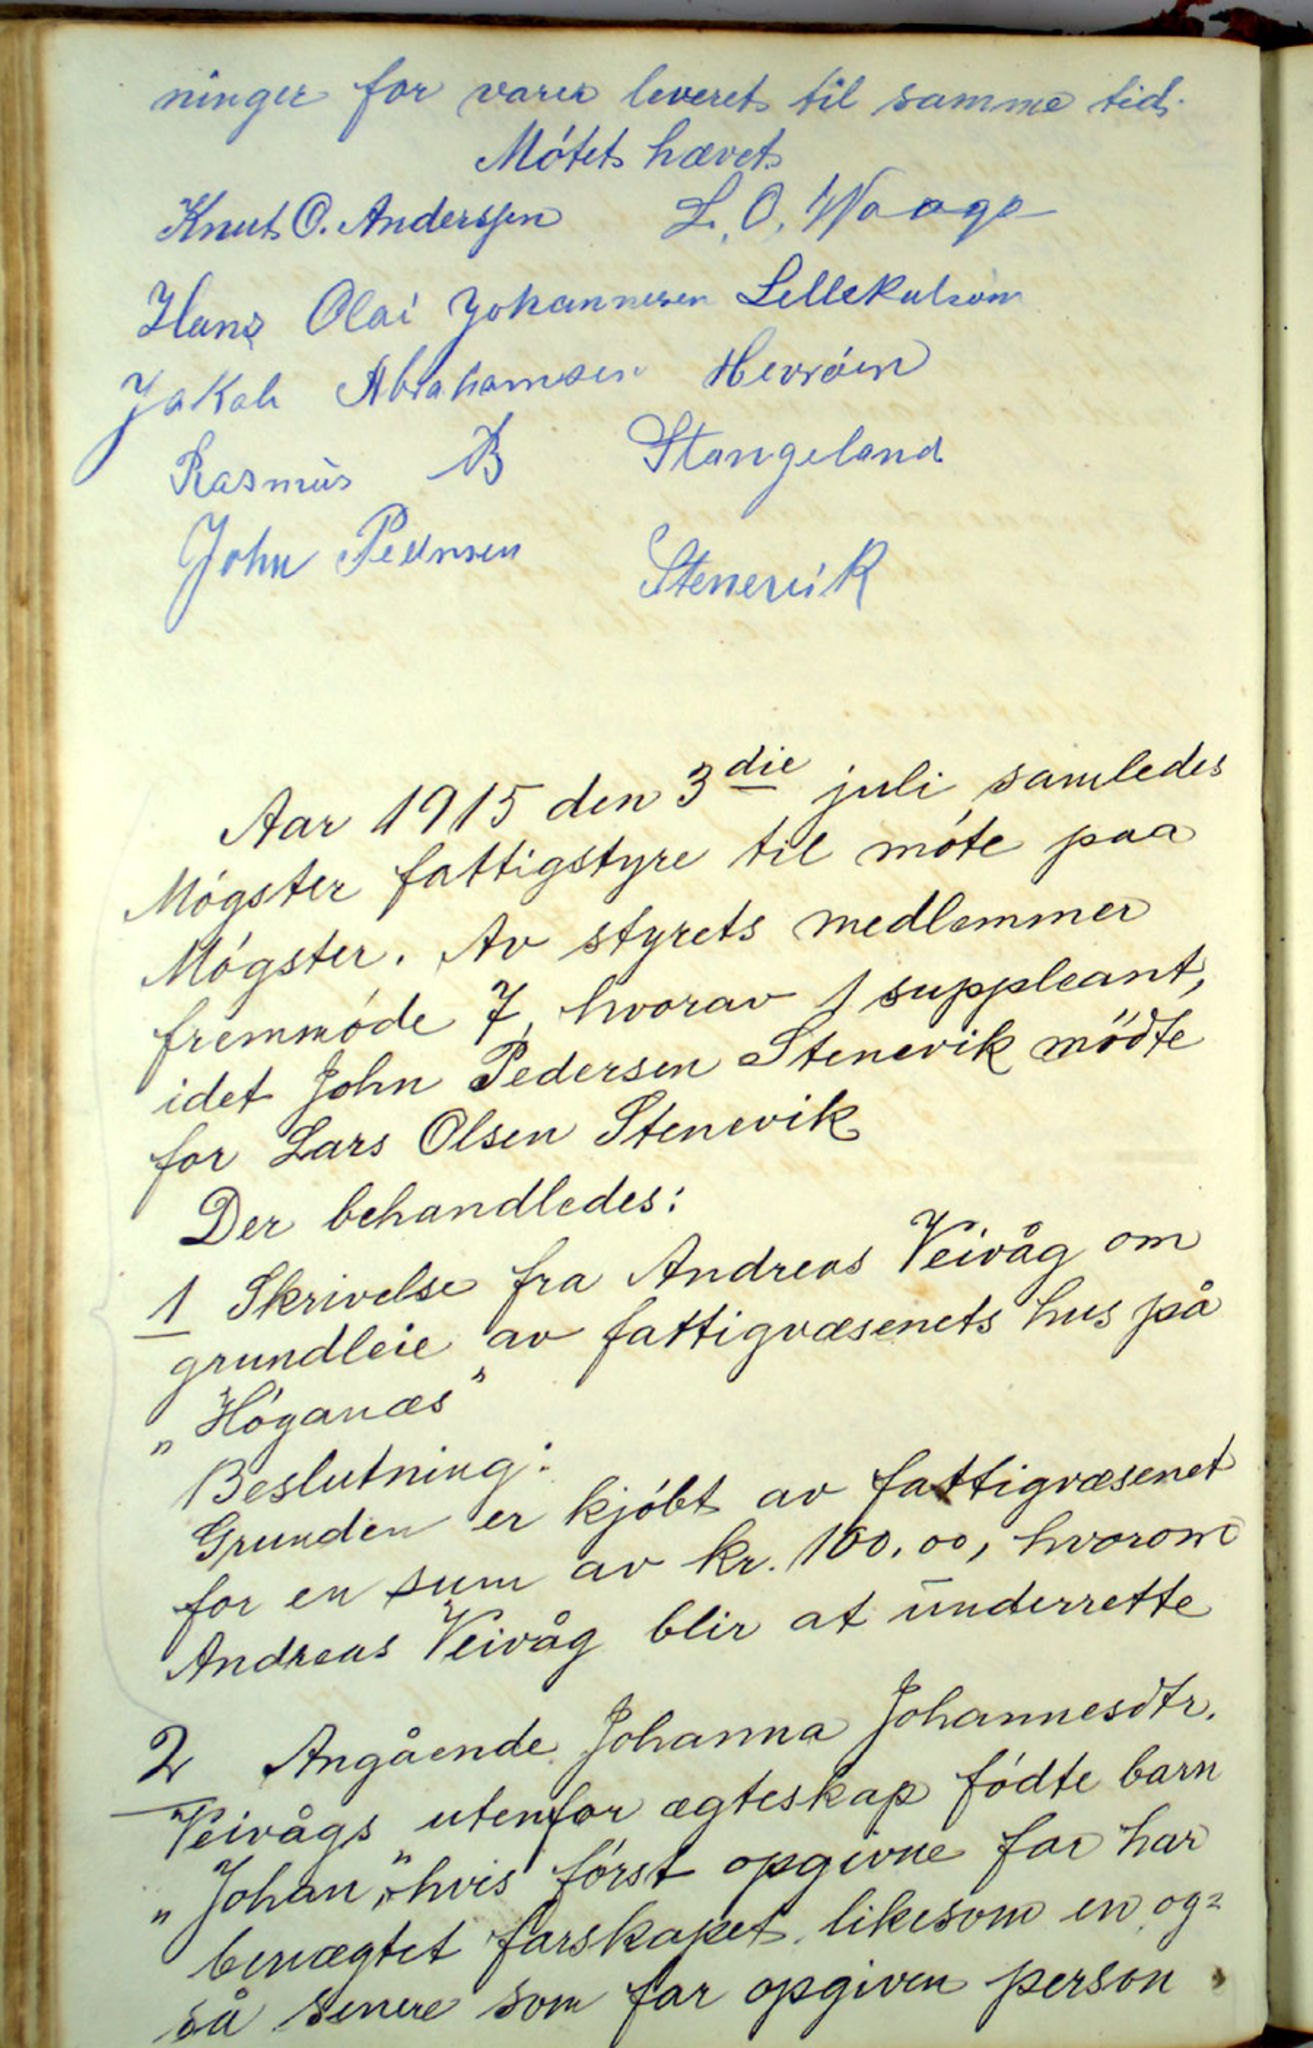 ninger for varer leveret til samme tid.
Mótet hævet
Knut O. Anderssen L. O. Waage
Hans Olai Johannesen Lillekalsøm
Jakob Abrahamsen Hevróen
Rasmus B Stangeland
John Pedersen Stenevik
Aar 1915 den 3die juli samledes
Mógster fattigstyre til móte paa
Mógster. Av styrets medlemmer
fremmóde 7, hvorav 1 suppleant,
idet John Pedersen Stenevik mödte
for Lars Olsen Stenevik
Der behandledes:
1 Skrivelse fra Andreas Veivåg om
grundleie av fattigvæsenets hus på
„Hóganæs"
Beslutning:
Grunden er kjóbt av fattigvæsenet
for en sum av kr. 100.00, hvorom
Andreas Veivåg blir at underrette
2 Angående Johanna Johannesdtr.
Veivågs utenfor ægteskap fódte barn
„Johan", hvis fórst opgivne far har
benægtet farskapet likesom en og=
så senere som far opgiven person